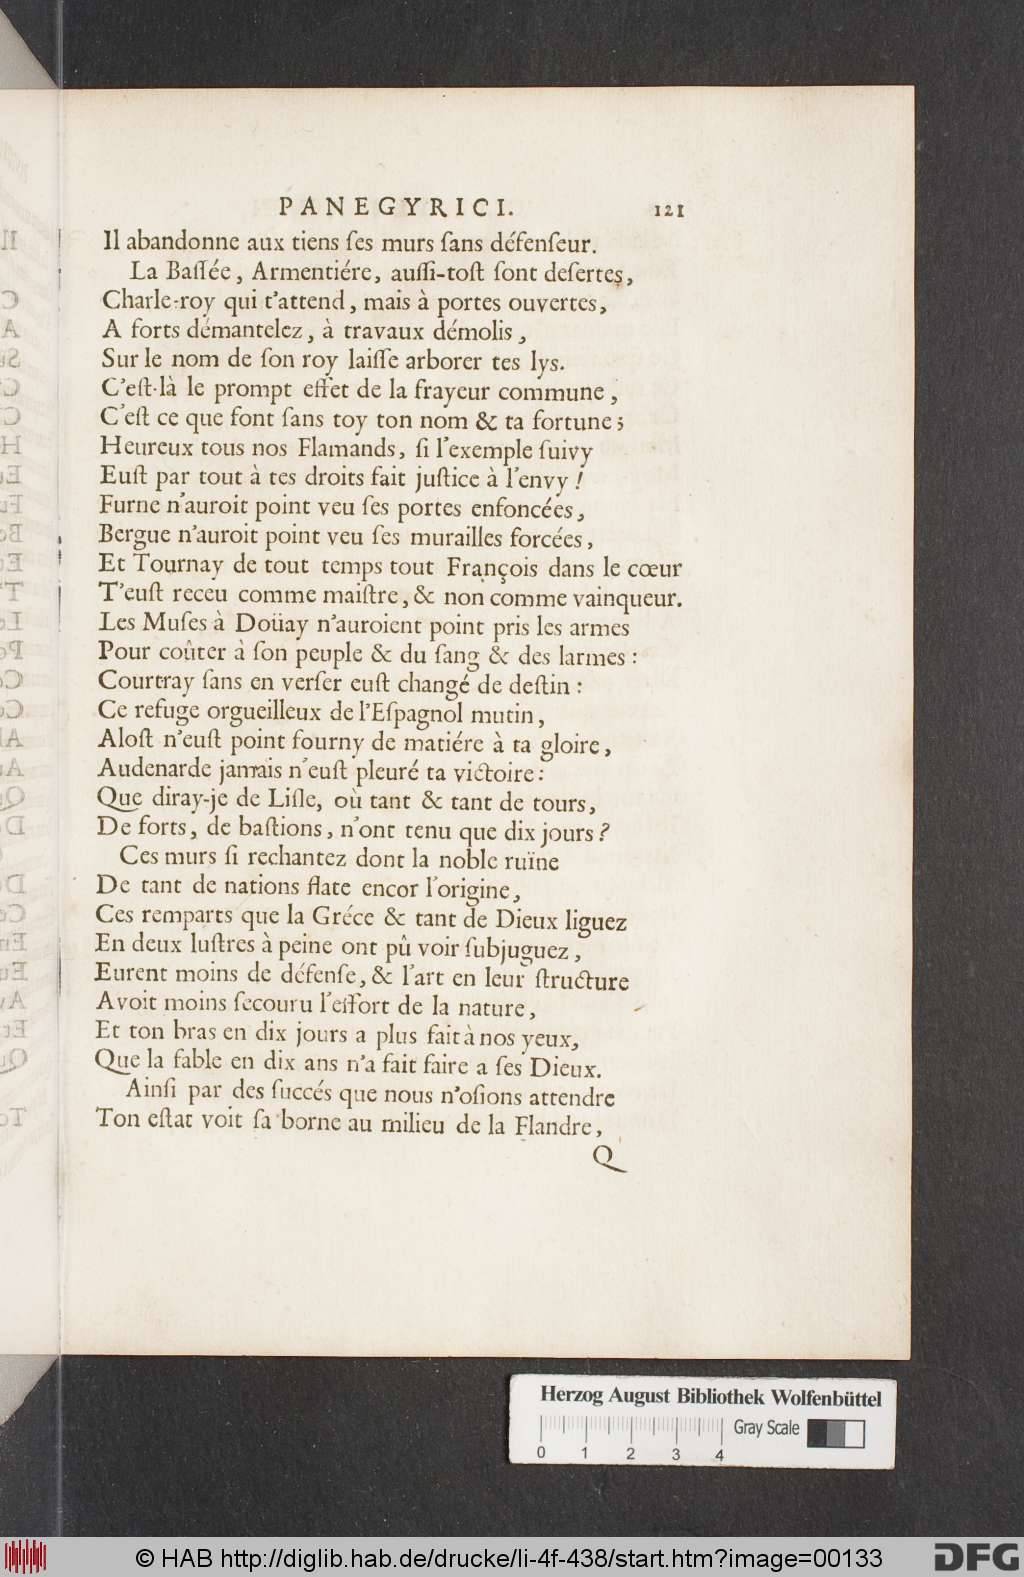 PANEGYRICI. 121
Il abandonne aux tiens ſes murs ſans défenſeur.
La Baſſée, Armentiére, auſſi-toſt ſont deſertes,
Charle-roy qui t'attend, mais à portes ouvertes,
A forts démantelez, à travaux démolis,
Sur le nom de ſon roy laiſſe arborer tes lys.
C'eſt-là le prompt effet de la frayeur commune,
C'eſt ce que font ſans toy ton nom & ta fortune;
Heureux tous nos Flamands, ſi l'exemple ſuivy
Euſt par tout à tes droits fait juſtice à l'envy!
Furne n'auroit point veu ſes portes enfoncées,
Bergue n'auroit point veu ſes murailles forcées,
Et Tournay de tout temps tout François dans le cœur
T'euſt receu comme maiſtre, & non comme vainqueur.
Les Muſes à Doüay n'auroient point pris les armes
Pour coûter à ſon peuple & du ſang & des larmes:
Courtray ſans en verſer euſt changé de deſtin:
Ce refuge orgueilleux de l'Eſpagnol mutin,
Aloſt n'euſt point fourny de matiére à ta gloire,
Audenarde jamais n'euſt pleuré ta victoire:
Que diray-je de Liſle, où tant & tant de tours,
De forts, de baſtions, n'ont tenu que dix jours?
Ces murs ſi rechantez dont la noble ruïne
De tant de nations flate encor l'origine,
Ces remparts que la Gréce & tant de Dieux liguez
En deux luſtres à peine ont pû voir ſubjuguez,
Eurent moins de défenſe, & l'art en leur ſtructure
Avoit moins ſecouru l'effort de la nature,
Et ton bras en dix jours a plus fait à nos yeux,
Que la fable en dix ans n'a fait faire a ſes Dieux.
Ainſi par des ſuccés que nous n'oſions attendre
Ton eſtat voit ſa borne au milieu de la Flandre,
Q
Herzog August Bibliothek Wolfenbüttel
Gray Scale
0 1 2 3 4
© HAB http://diglib.hab.de/drucke/li-4f-438/start.htm?image=00133
DFG